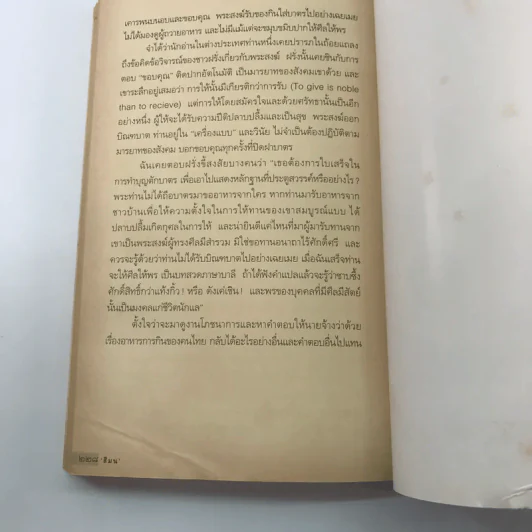 เคารพนบนอบและขอบคุณ พระสงฆ์รับของกินใส่บาตรไปอย่างเฉยเมย
ไม่ได้มองดูผู้ถวายอาหาร และไม่มีแม้แต่จะขมุบขมิบปากให้ศีลให้พร
จำได้ว่านักอ่านในต่างประเทศท่านหนึ่งเคยปรารภในถ้อยแถลง
ถึงข้อคิดข้อวิจารณ์ของชาวฝรั่งเกี่ยวกับพระสงฆ์ ฝรั่งนั้นเคยชินกับการ
ตอบ "ขอบคุณ" ติดปากอัตโนมัติ เป็นมารยาทของสังคมเขาด้วย และ
เขาระลึกอยู่เสมอว่า การให้นั้นมีเกียรติกว่าการรับ (To give is noble
than to recieve) แต่การให้โดยสมัครใจและด้วยศรัทธานั้นเป็นอีก
อย่างหนึ่ง ผู้ให้จะได้รับความปีติปลาบปลื้มและเป็นสุข พระสงฆ์ออก
บิณฑบาต ท่านอยู่ใน "เครื่องแบบ" และวินัย ไม่จำเป็นต้องปฏิบัติตาม
มารยาทของสังคม บอกขอบคุณทุกครั้งที่ปิดฝาบาตร
ฉันเคยตอบฝรั่งขี้สงสัยบางคนว่า "เธอต้องการใบเสร็จใน
การทำบุญตักบาตร เพื่อเอาไปแสดงหลักฐานที่ประตูสวรรค์หรืออย่างไร?
พระท่านไม่ได้ถือบาตรมาขออาหารจากใคร หากท่านมารับอาหารจาก
ชาวบ้านเพื่อให้ความตั้งใจในการให้ทานของเขาสมบูรณ์แบบ ได้
ปลาบปลื้มเกิดกุศลในการให้ และน่ายินดีแค่ไหนที่มาผู้มารับทานจาก
เขาเป็นพระสงฆ์ผู้ทรงศีลมีสำรวม มิใช่ขอทานอนาถาไร้ศักดิ์ศรี และ
ควรจะรู้ด้วยว่าท่านไม่ได้รับบิณฑบาตไปอย่างเฉยเมย เมื่อฉันเสร็จท่าน
จะให้ศีลให้พร เป็นบทสวดภาษาบาลี ถ้าได้ฟังคำแปลแล้วจะรู้ว่าซาบซึ้ง
ศักดิ์สิทธิ์กว่าแท้งกิ้ว! หรือ ดังเค่เชิน! และพรของบุคคลที่มีศีลมีสัตย์
นั้นเป็นมงคลแก่ชีวิตนักแล"
ตั้งใจว่าจะมาดูงานโภชนาการและหาคำตอบให้นายจ้างว่าด้วย
เรื่องอาหารการกินของคนไทย กลับได้อะไรอย่างอื่นและคำตอบอื่นไปแทน
๒๒๘ 'สีมน'